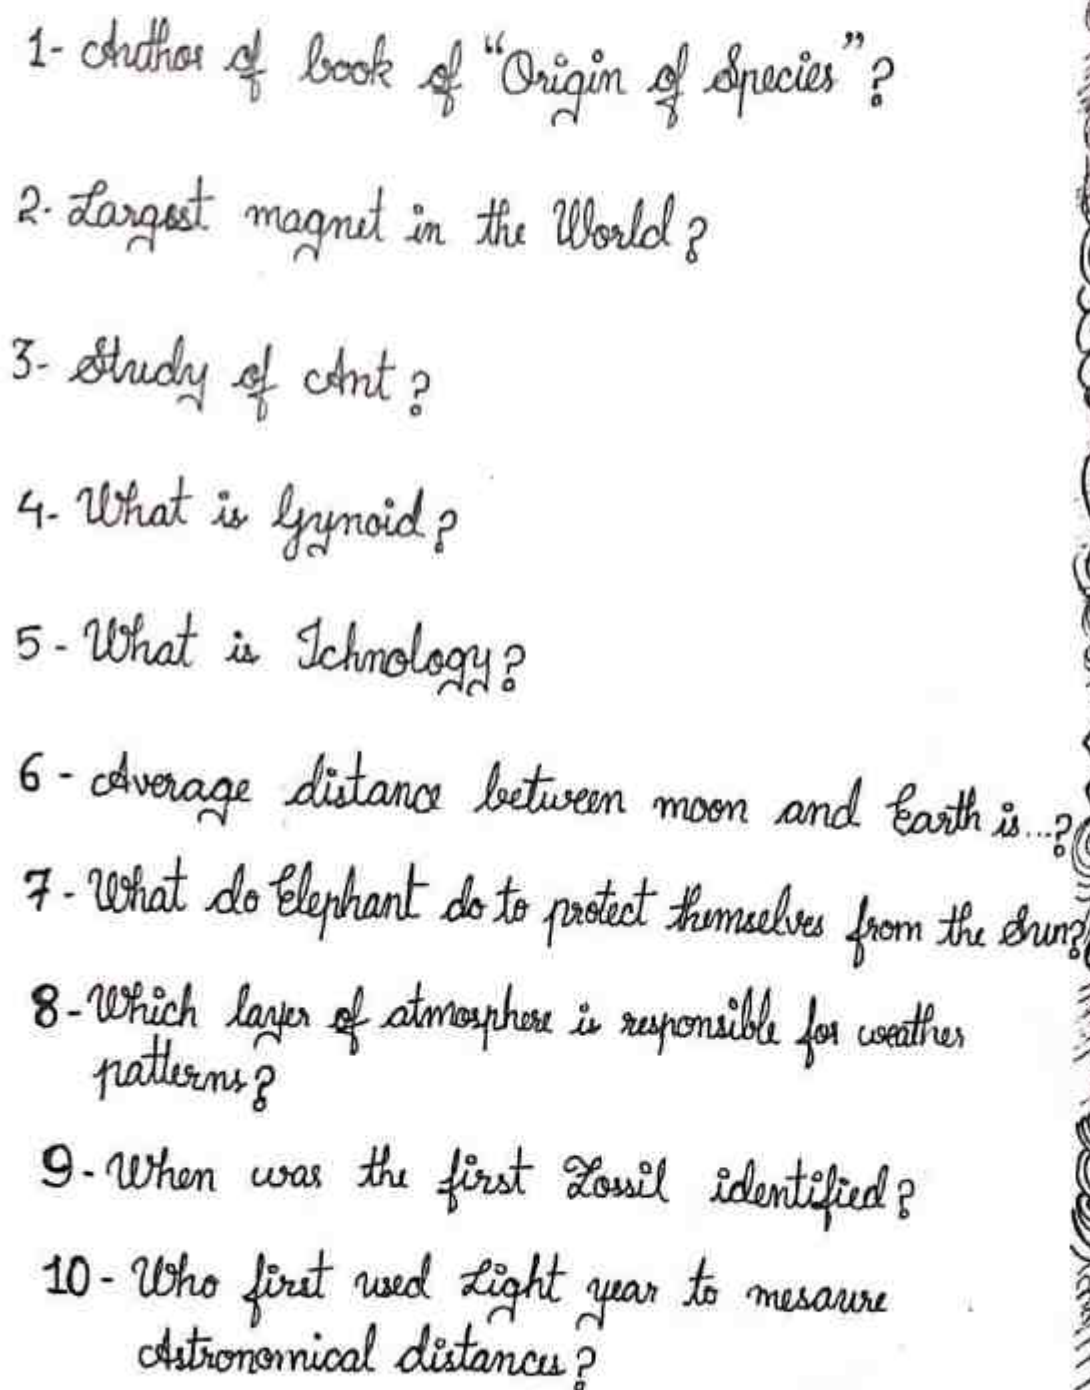 1- Author of book of “Origin of Species”?
2- Largest magnet in the World?
3- Study of Ant?
4- What is Gynoid?
5- What is Ichnology?
6- Average distance between moon and Earth is...?
7- What do Elephant do to protect themselves from the Sun?
8- Which layer of atmosphere is responsible for weather
patterns?
9- When was the first Fossil identified?
10- Who first used Light year to mesaure
Astronomical distances?